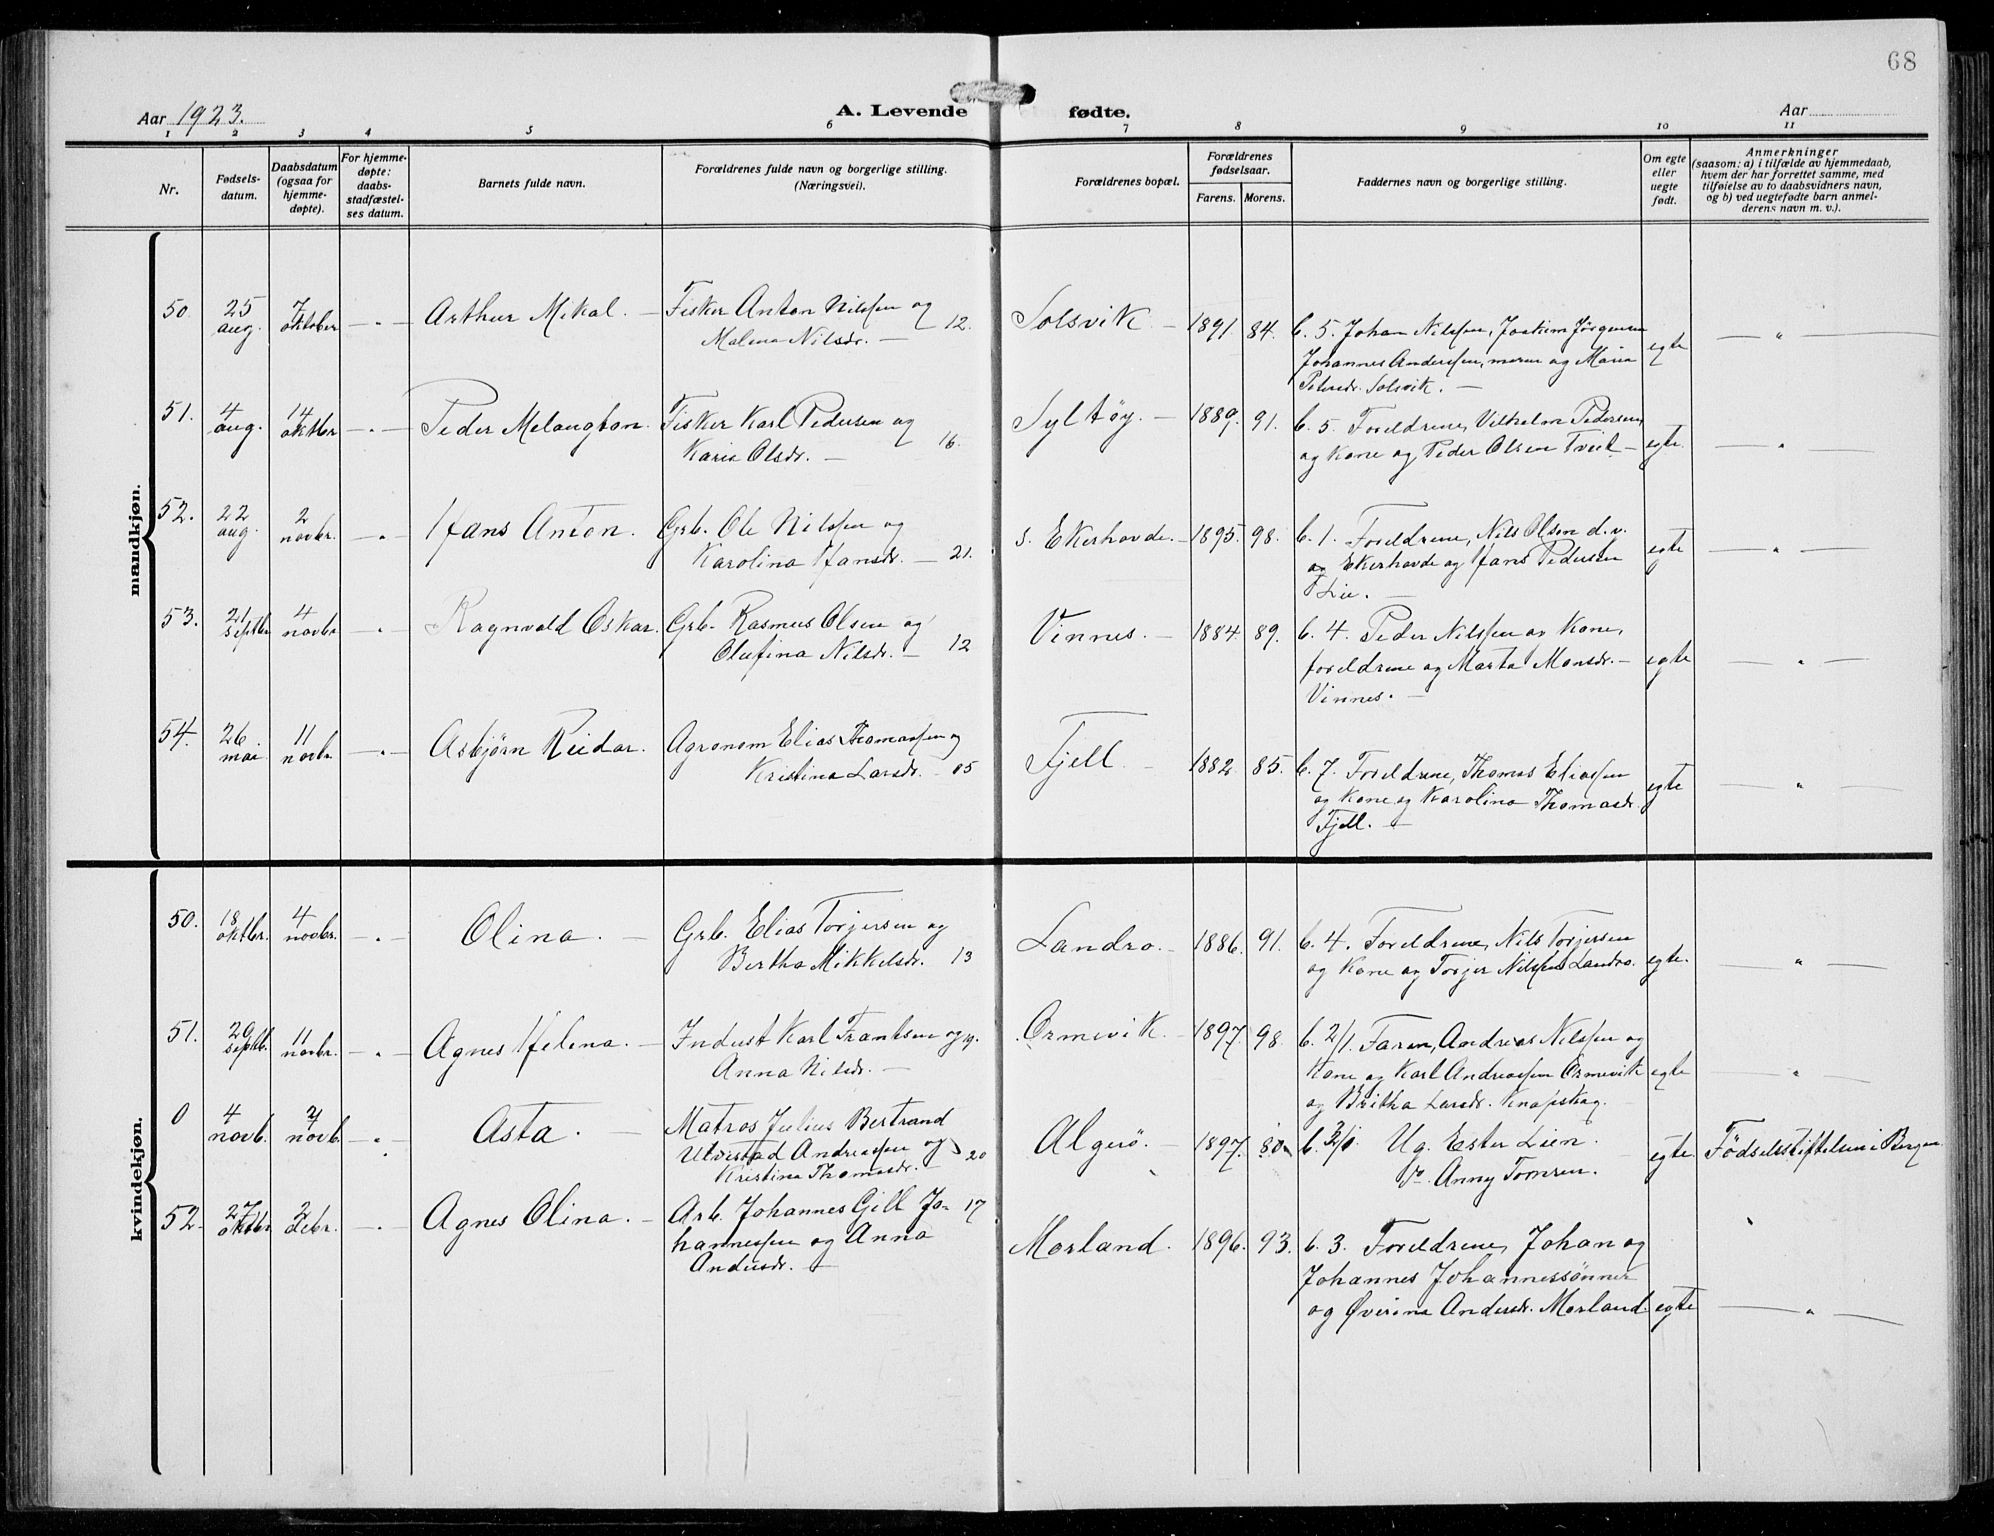 68
Aar 1923.
A. Levende fødte.
Aar
1 2 3 4 5 6 7 8 9 10 11
Nr.
Fødsels-
datum.
Daabsdatum
(ogsaa for
hjemme-
døpte).
For hjemme-
døpte:
daabs-
stadfæstel-
ses datum.
Barnets fulde navn.
Forældrenes fulde navn og borgerlige stilling.
(Næringsvei).
Forældrenes bopæl.
Forældrenes
fødselsaar.
Farens. Morens.
Faddernes navn og borgerlige stilling.
Om egte
eller
uegte
født.
Anmerkninger
(saasom: a) i tilfælde av hjemmedaab,
hvem der har forrettet samme, med
tilføielse av to daabsvidners navn,
og b) ved uegtefødte barn anmel-
derens navn m. v.).
mandkjøn.
50.
25
aug.
7
oktober
- " -
Arthur Mikal. -
Fisker Anton Nilssen og
Malena Nilsdr. -
12.
Solsvik -
1891. 84.
b. 5. Johan Nilssen, Joakim Jørgensen
Johannes Anderssen, moren og Maria
Petersdr. Solsvik. -
egte
- " -
51.
4
aug.
14
oktbr
- " -
Peder Melangton.
Fisker Karl Pedersen og
Karia Olsdr. -
16.
Syltøy. -
1889. 91.
b. 5. Foreldrene, Vilhelm Pedersen,
og Kone og Peder Olsen Tveit -
egte.
- " -
52.
22
aug.
2
novbr.
- " -
Hans Anton.
Grb. Ole Nilssen og
Karolina Hansdr. -
21.
s. Ekerhovde. -
1895. 98.
b. 1. Foreldrene, Nils Olsen d.v.
og Ekerhovde og Hans Pedersen
Lie. -
egte
- " -
53.
21
septbr.
4
novbr
- " -
Ragnvald Oskar.
Grb. Rasmus Olsen og
Olufina Nilsdr. -
12
Vinnes. -
1884. 89.
b. 4. Peder Nilssen og Kone,
foreldrene og Marta Monsdr. -
Vinnes. -
egte
- " -
54.
26
mai.
11
novbr
- " -
Asbjørn Reidar.
Agronom Elias Thomassen og
Kristina Larsdr. - 05
Fjell -
1882. 85.
b. 7. Foreldrene, Thomas Eliassen
og Kone og Karolina Thomasdr.
Fjell. -
egte
- " -
kvindekjøn.
50.
18
oktbr.
4
novbr.
- " -
Olina. -
Grb. Elias Torjersen og
Bertha Mikkelsdr. 13
Landro. -
1886. 91.
b. 4. Foreldrene, Nils Torjersen
og Kone og Torjer Nilssen Landro.
egte.
- " -
51.
29
septb.
11
novbr.
- " -
Agnes Helena. -
Indust Karl Frantsen og 19.
Anna Nilsdr. -
Ormevik -
1897. 98.
b. 2/1. Faren, Andreas Nilssen og
Kone og Karl Andreassen Ormevik
og Britha Larsdr. Knapskog.
egte
- " -
0
4
novb.
novb.
- " -
Asta. -
Matros Julius Bertrand
Ulvestad Andreassen og
Kristina Thomasdr. -
20
Algerø.
1897.
Ug. Ester Lien.
Do. Anny Tomsen.
egte
Fødselsstiftelsen i Bergen
52.
27
oktbr
2
debr.
- " -
Agnes Olina. -
Arb. Johannes Gill Jo- 17
hannessen og Anna
Andersdr. -
Morland.
1896. 93.
b. 3. Foreldrene, Johan og
Johannes Johannessønner
og Øverina Andersdr. Morland.
egte
- " -